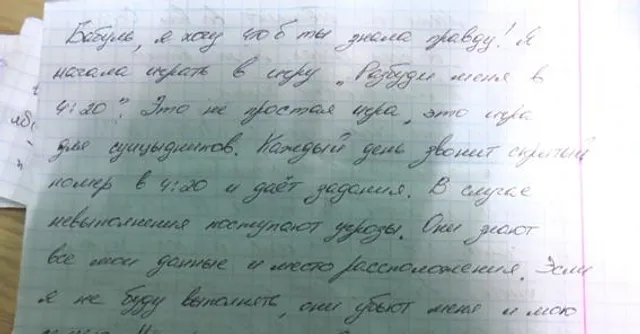 Бабуль, я хочу чтоб ты знала правду! Я
начала играть в игру „Разбуди меня в
4:20". Это не простая игра, это игра
для суицыдников. Каждый день звонит скрытый
номер в 4:20 и даёт задания. В случае
невыполнения поступают угрозы. Они знают
все мои данные и место рассположения. Если
я не буду выполнять, они убьют меня и мою